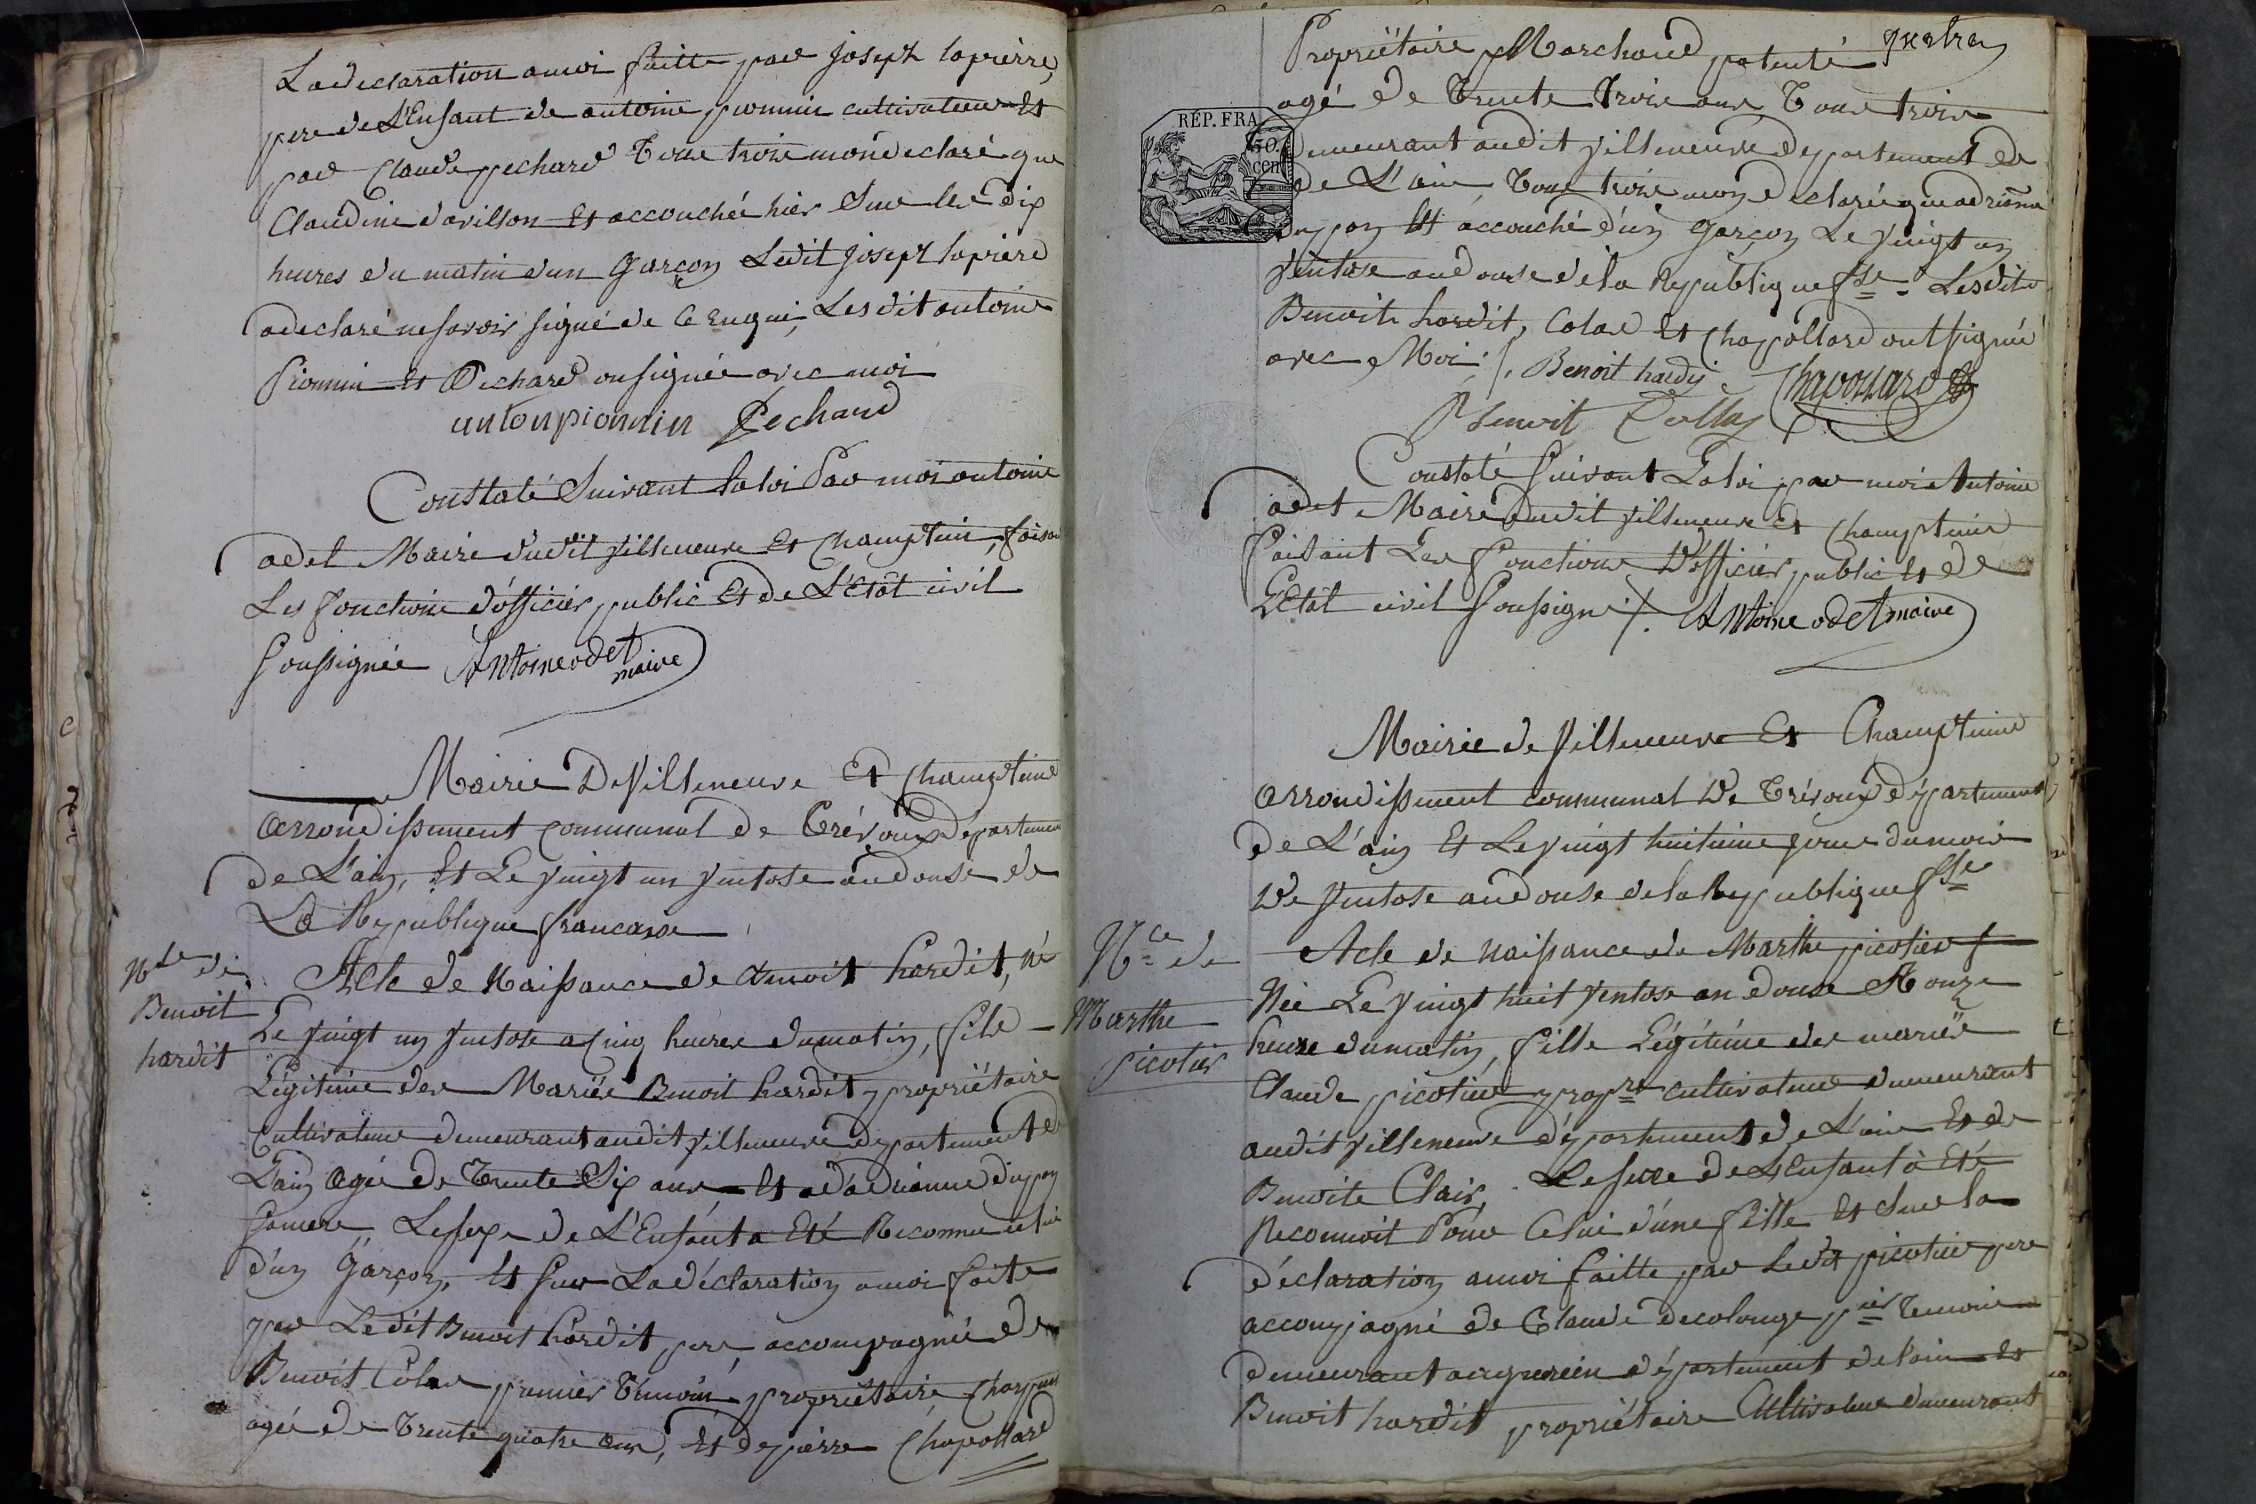 La declaration a moi faitte par joseph lapierre,
pere de L'Enfant de antoine pionnin cultivateur Et
par Claude pechard Tous trois mon declaré que
Claudine davillon Et accouchée hier Sur les dix
heures du matin d'un garçon Ledit joseph lapierre
a declaré ne savoir signé de ce Enquis, Les dit antoine
Pionnin Et Pechard on signée avec moi
antoin pionnin Pechard
Constaté Suivant la loi Par moi antoine
odet Maire dudit villeneuve Et Champteins, faisan
Les fonctions d'officier public Et de L'Etat civil
soussignée Antoine odet
maire
Mairie De Villeneuve Et Champteine
Arrondissement communal de Trévoux departemen
de L'ain, Et Le vingt un ventose an douse de
La Republique francaise
Nce de
Benoit
hardit
Acte de Naissance de Benoit hardit, né
Le vingt un ventose a cinq heures du matin, fils
Légitime des Mariés Benoit hardit propriétaire
Cultivateur demeurant audit villeneuve departement de
L'ain agé de Trente Six ans Et d'adrianne dupon
sa mere, Le sexe de L'Enfant a Eté Reconnu celui
d'un garçon, Et sur La déclaration a moi faite
par Ledit Benoit hardit pere accompagné de
Benoit Colas premier Témoin, propriétaire,
agée de Trente quatre ans, Et de pierre Chapollard
quatre
Propriétaire Marchand patenté
agé de Trente Trois ans Tous trois
demeurant audit villeneuve departement de
de L'ain Tous trois mon declaré que adrianne
dupon Et accouché d'un garçon Le vingt un
ventose an douse de la Republique fse. Lesdits
Benoit hardit, Colas Et Chapollard ont signée
avec Moi ./. Benoit hardy Chapollard
Benoit Collas
RÉP. FRA.
50.
cen
Constaté suivant La loi par moi Antoine
odet Maire dudit villeneuve Et Champteine
faisant Les fonctions D'officier public Et de
L'Etat civil soussigné ./. Antoine odet maire
Mairie de Villeneuve Et Champteine
Arrondissement communal De Trévoux département
de L'ain Et Le vingt huitieme jour du mois
De ventose an douse de la Republique fse
Nce de
Marthe
picotier
Acte de naissance de Marthe picotier
Née Le vingt huit ventose an douse A onze
heure du matin, fille Légitime des mariés
Claude picotier propre cultivateur demeurant
audit villeneuve département de L'ain Et de
Benoite Clair, Le sexe de L'Enfant à Eté
Reconnoit Pour Celui d'une fille Et Sur la
déclaration a moi faitte par Ledt picotier pere
accompagné de Claude decolonge pier Temoin
demeurant departement de lain Et
Benoit hardit propriétaire Cultivateur demeurant